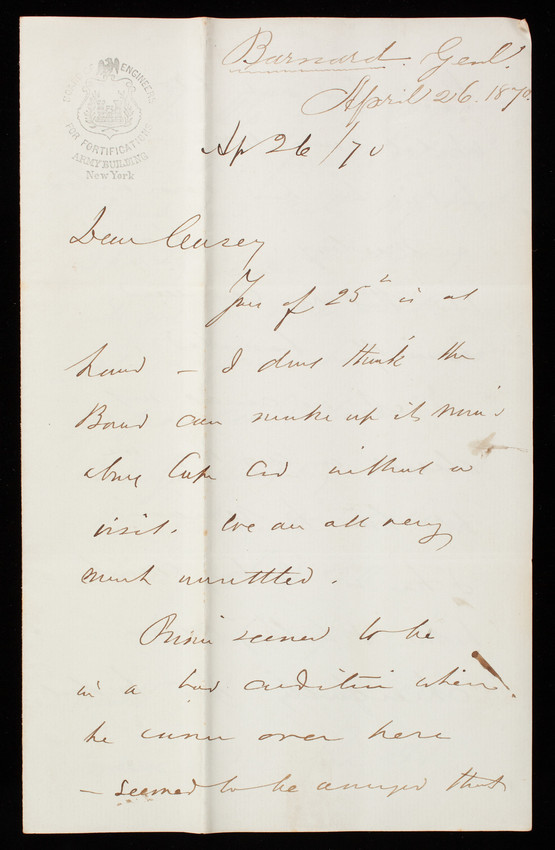 Barnard. Genl.
April 26. 1870.
ENGINEERS
FOR FORTIFICATIONS
ARMY BUILDING
New York
Ap 26/70
Dear Casey
Yrs of 25th is at
hand – I dont think the
Board can make up its mind
about Cape Cod without a
visit. We are all very
much unsettled.
seemed to be
in a bad condition when
he came over here
– seemed to be annoyed that